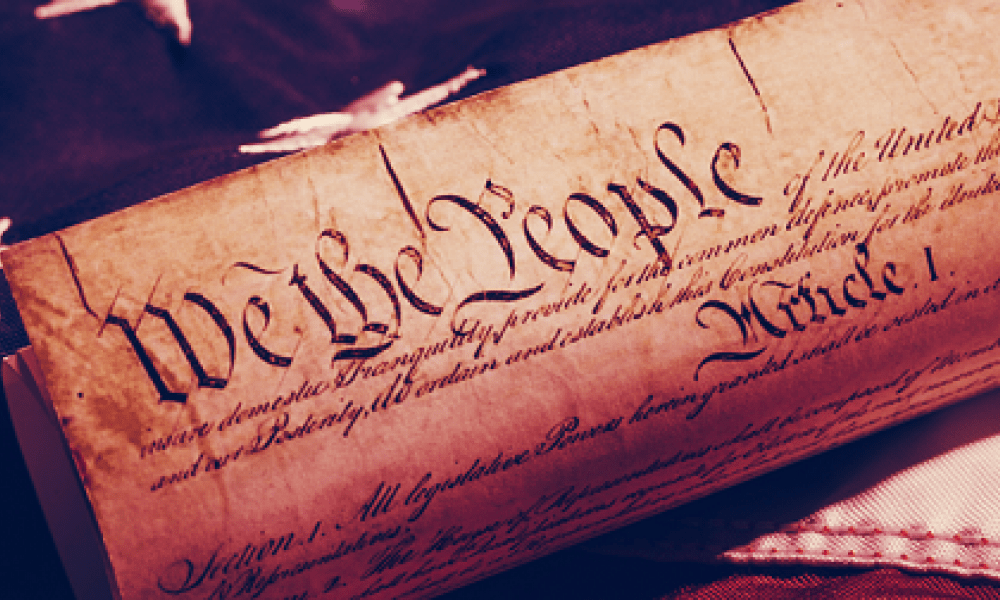 We the People of the United
insure domestic Tranquility, provide for the common defence, promote the
and our Posterity, do ordain and establish this Constitution for the United
Article. I.
Section. 1. All legislative Powers herein granted shall be vested in a
of Representatives.
2. The House of Representatives shall be composed of